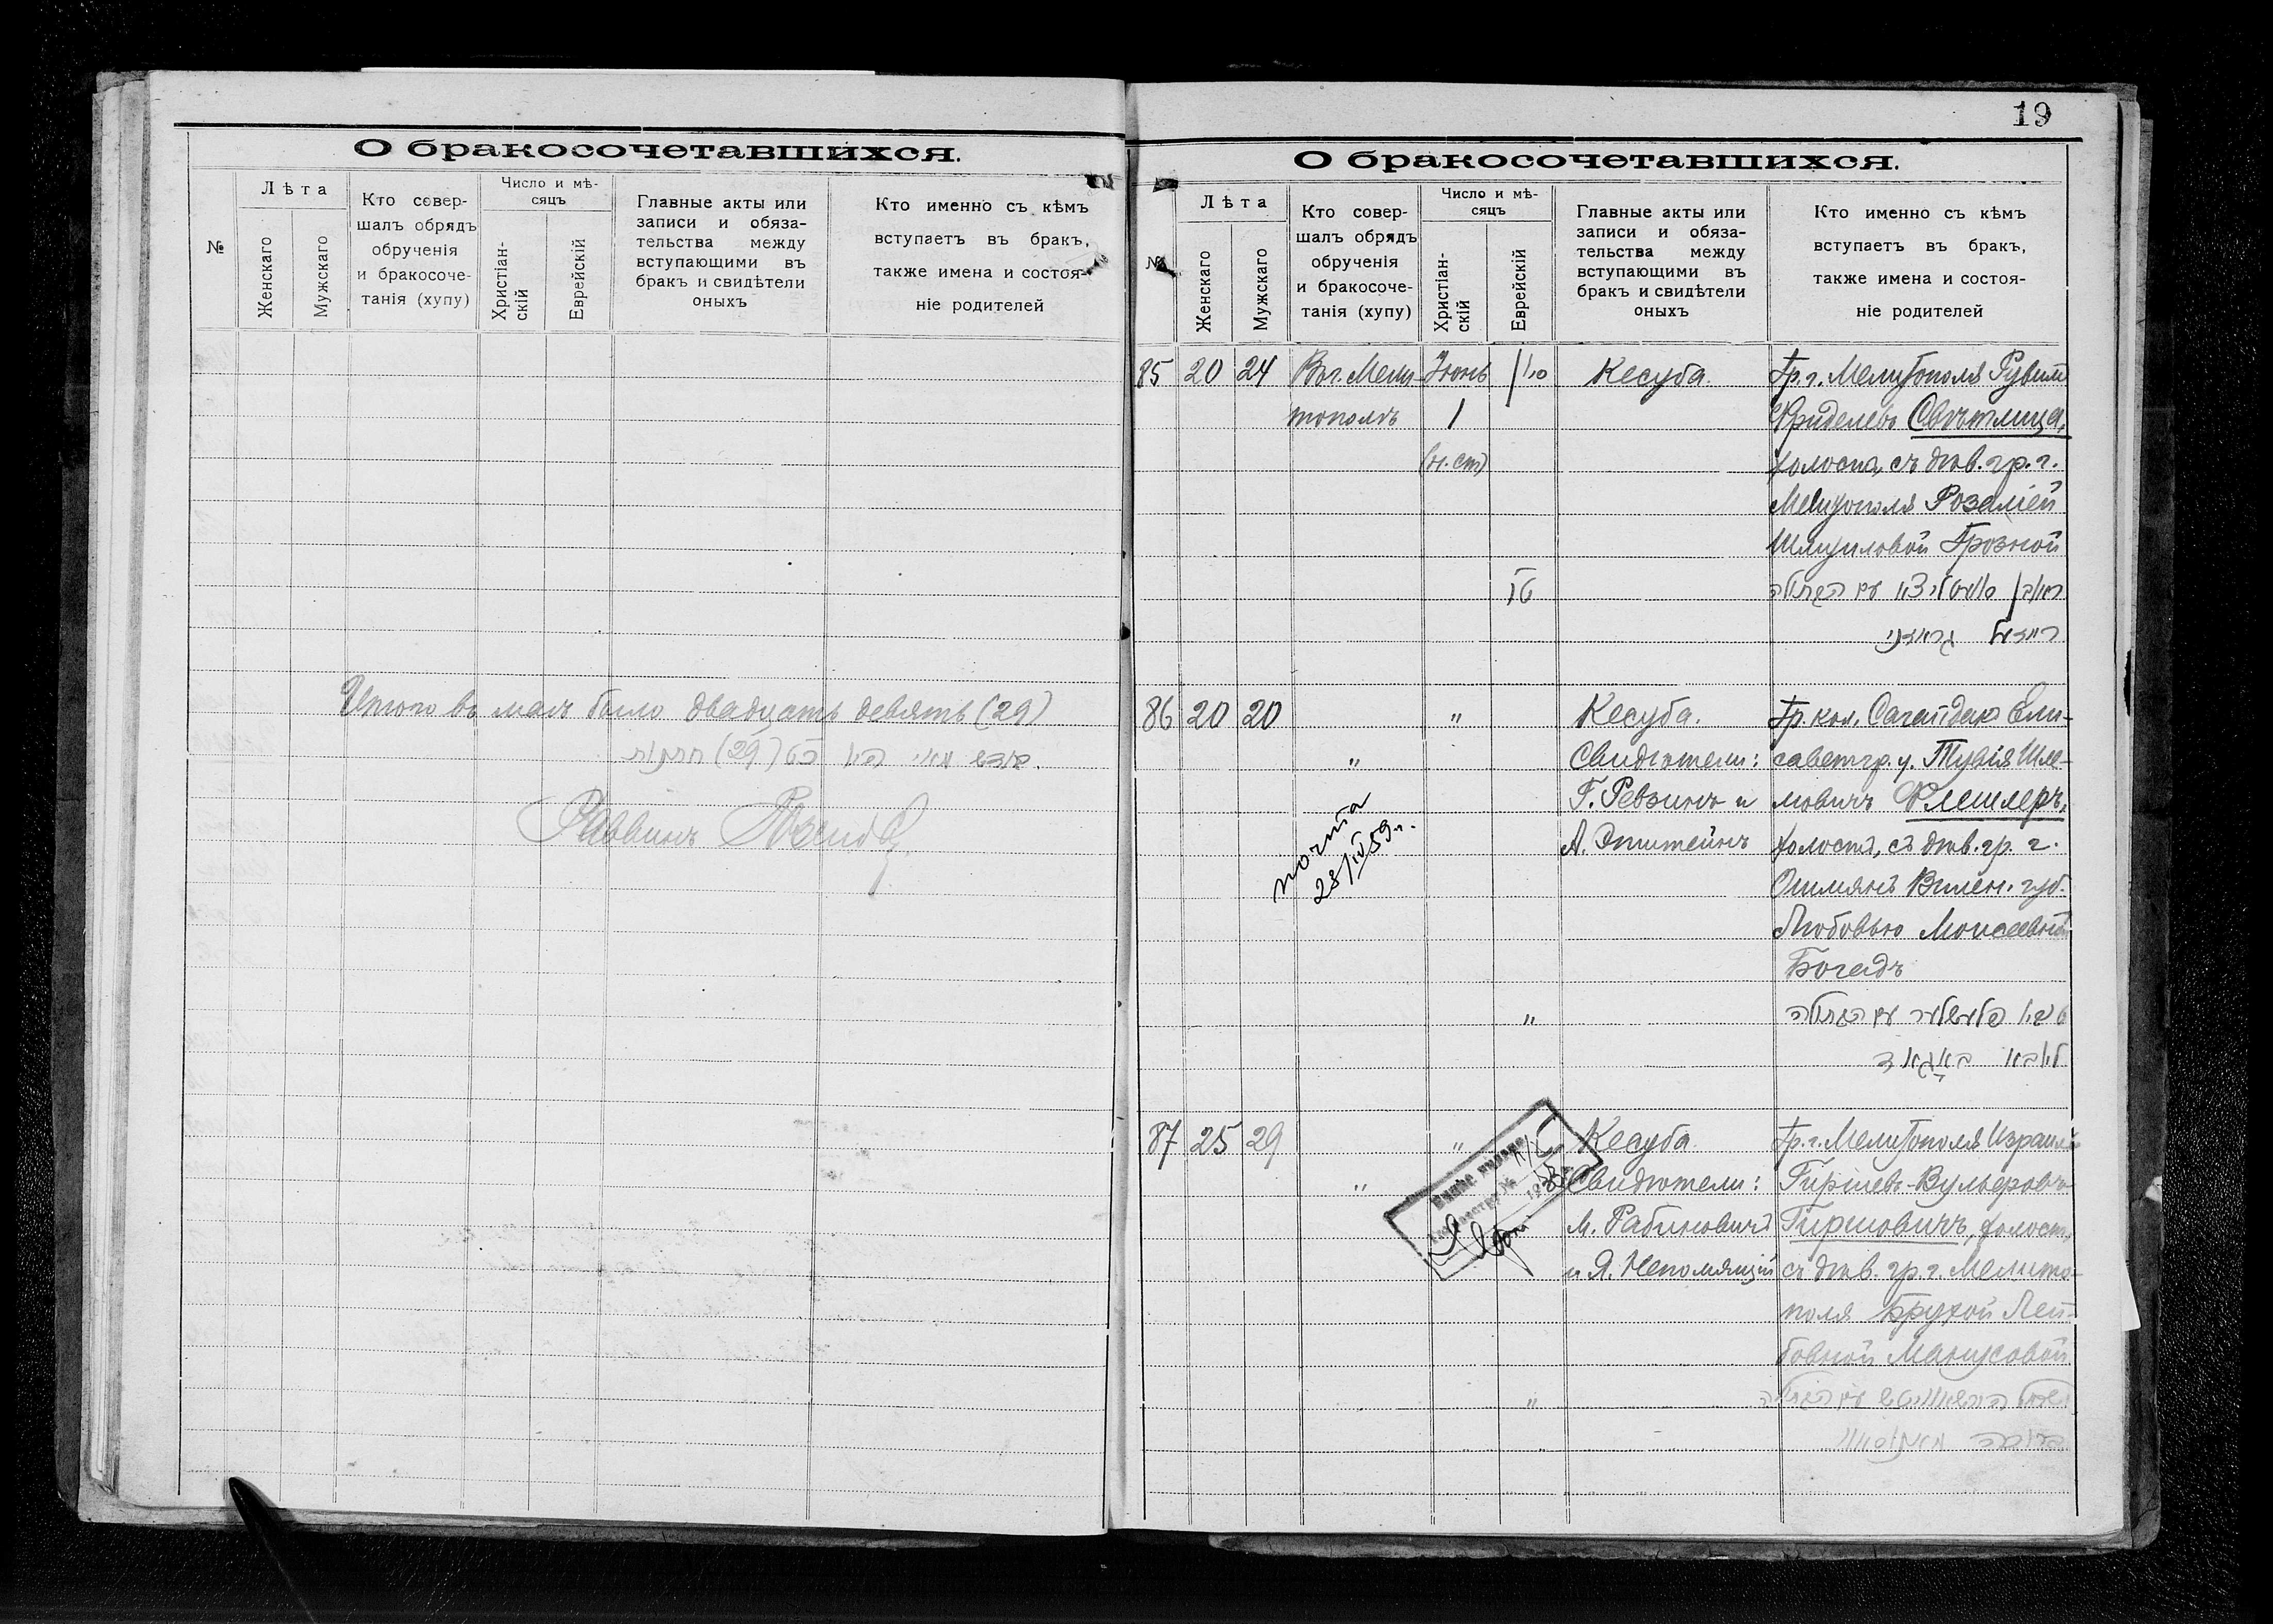 О бракосочетавшихся.
№
Лѣта
Женскаго
Мужскаго
Кто совер-
шалъ обрядъ
обрученія
и бракосоче-
танія (хупу)
Число и мѣ-
сяцъ
Христіан-
скій
Еврейскій
Главные акты или
записи и обяза-
тельства между
вступающими въ
бракъ и свидѣтели
оныхъ
Кто именно съ кѣмъ
вступаетъ въ бракъ,
также имена и состоя-
ніе родителей
Итого въ маѣ было двадцать девять (29)
(29)
Раввинъ
19
О бракосочетавшихся.
№
Лѣта
Женскаго
Мужскаго
Кто совер-
шалъ обрядъ
обрученія
и бракосоче-
танія (хупу)
Число и мѣ-
сяцъ
Христіан-
скій
Еврейскій
Главные акты или
записи и обяза-
тельства между
вступающими въ
бракъ и свидѣтели
оныхъ
Кто именно съ кѣмъ
вступаетъ въ бракъ,
также имена и состоя-
ніе родителей
85 20 24
Въ г. Мели-
тополѣ
Июнь
1
(н. ст)
סיון
טז
Кесуба.
Гр. г. Мелитополя Рувим
Фриделевъ Свѣтлица,
холостъ, съ дѣв. гр. г.
Мелитополя Розаліей
Шмуиловой Грозной
ראובן סוועטליצא עם הבתולה
רייזל גראזני
86 20 20
"
"
"
почта
28/IV 59 г.
Кесуба.
Свидѣтели:
Г. Ревзинъ и
А. Эпштейнъ
Гр. кол. Сагайдакъ Ели-
саветгр. у. Тувія Шле-
мовичъ Флешлеръ,
холостъ, съ дѣв. гр. г.
Ошмянъ Вилен. губ.
Любовью Моисеевной
Богадъ
טביה פלעשלער עם הבתולה
ליובא באגאד
87 25 29
"
"
"
Кесуба.
Свидѣтели:
М. Рабиновичъ
и Я. Непомнящій
Гр. г. Мелитополя Израиль
Гиршевъ-Вульфовъ
Гиршовичъ, холостъ,
съ дѣв. гр. г. Мелито-
поля Брухой Лей-
бовной Манусовой
ישראל הירשאוויטש עם הבתולה
ברוכה מאנוסאוו